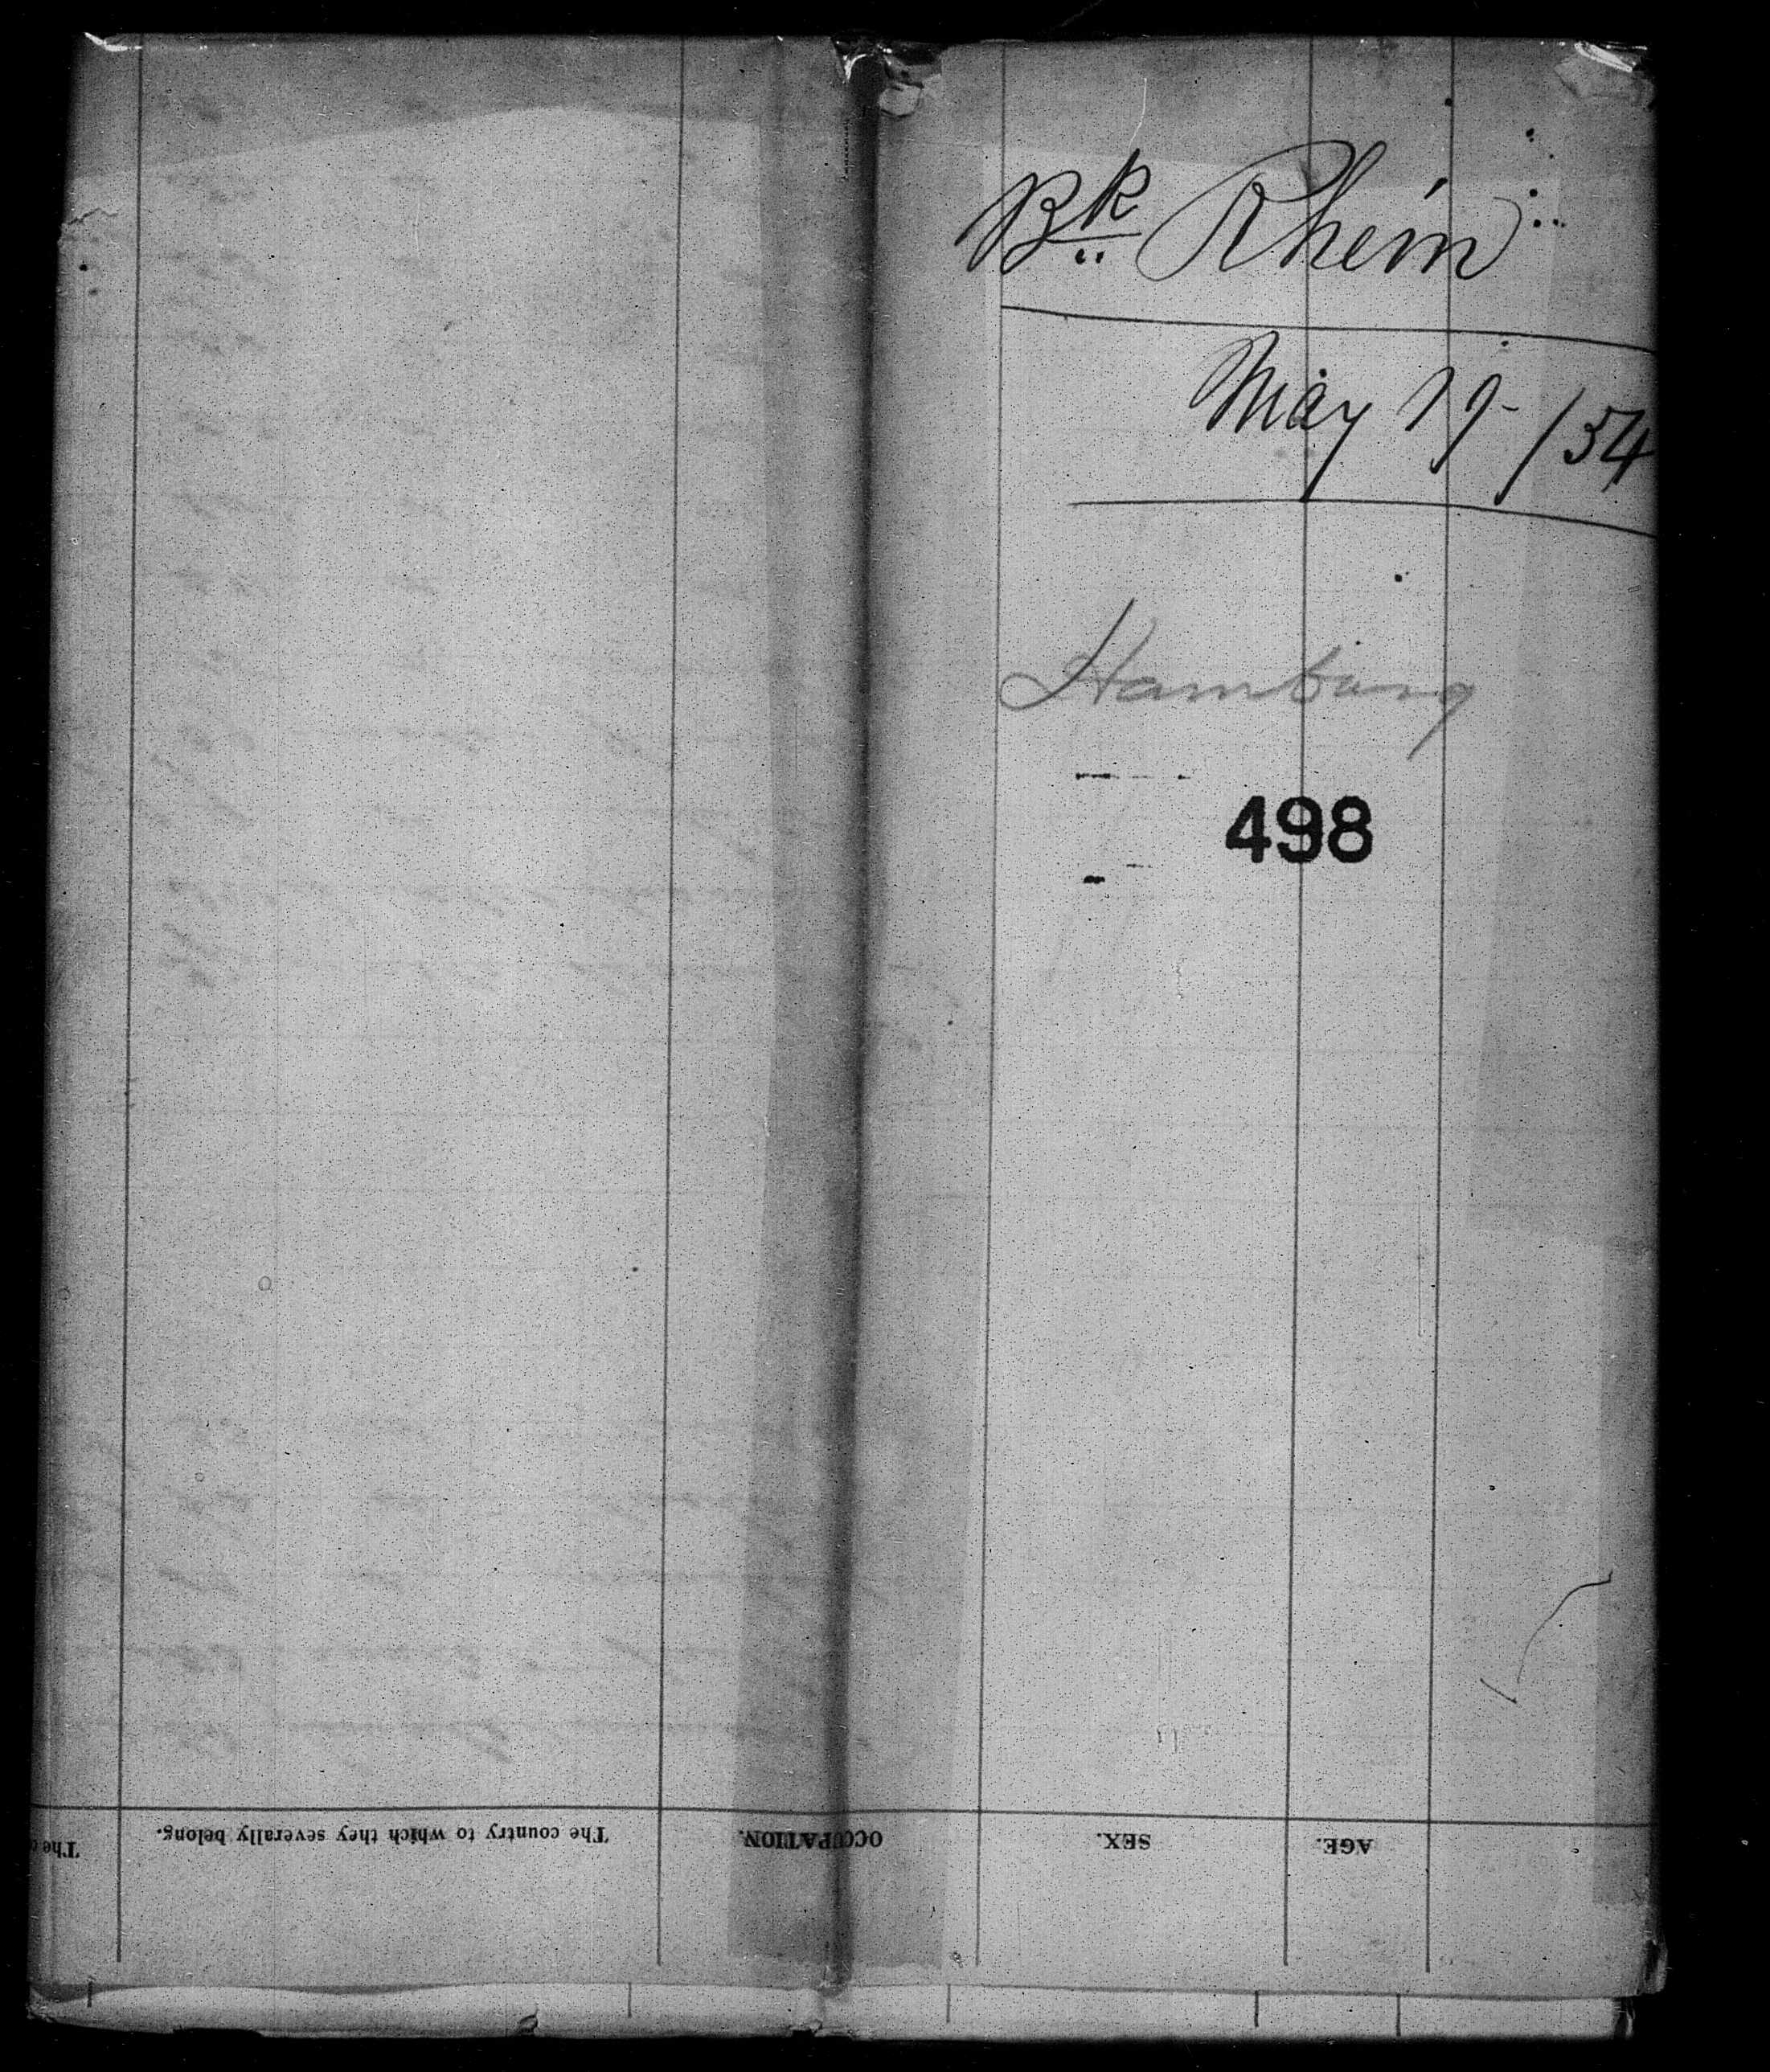 Bk Rhein
May 19 - /54
Hamburg
498
The country to which they severally belong.
OCCUPATION.
SEX.
AGE.